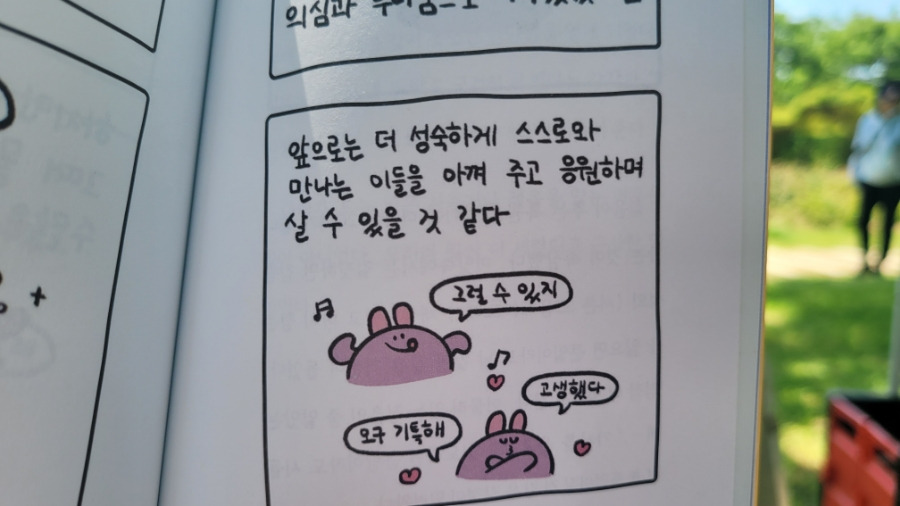 의심과
앞으로는 더 성숙하게 스스로와
만나는 이들을 아껴 주고 응원하며
살 수 있을 것 같다
그럴 수 있지
고생했다
오구 기특해